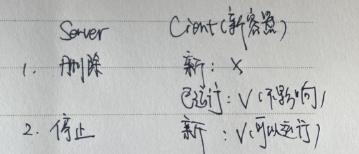 Server Cient(新容器)
1. 删除 新: X
已运行: √(不影响)
2. 停止 新: √(可以运行)